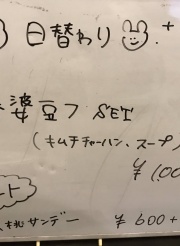 日替わり
婆豆フ SET
(キムチチャーハン、スープ)
¥1,00
ート
サンデー ¥600+